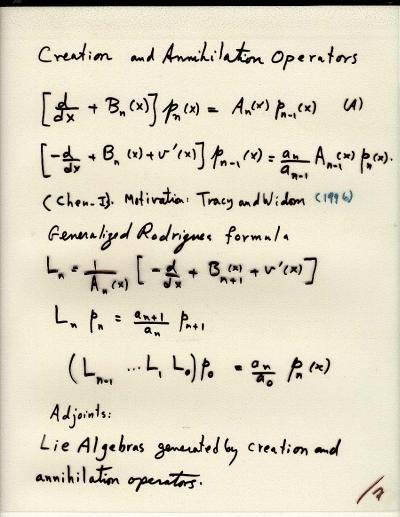 Creation and Annihilation Operators
[d/dx + Bₙ(x)] pₙ(x) = Aₙ(x) pₙ₋₁(x) (A)
[-d/dx + Bₙ(x) + v'(x)] pₙ₋₁(x) = aₙ/aₙ₋₁ Aₙ₋₁(x) pₙ(x).
(Chen-I). Motivation: Tracy and Widom (1996)
Generalized Rodrigues formula
Lₙ = 1/Aₙ(x) [-d/dx + Bₙ₊₁(x) + v'(x)]
Lₙ pₙ = aₙ₊₁/aₙ pₙ₊₁
(Lₙ₋₁ ... L₁ L₀) p₀ = aₙ/a₀ pₙ(x)
Adjoints:
Lie Algebras generated by creation and
annihilation operators.